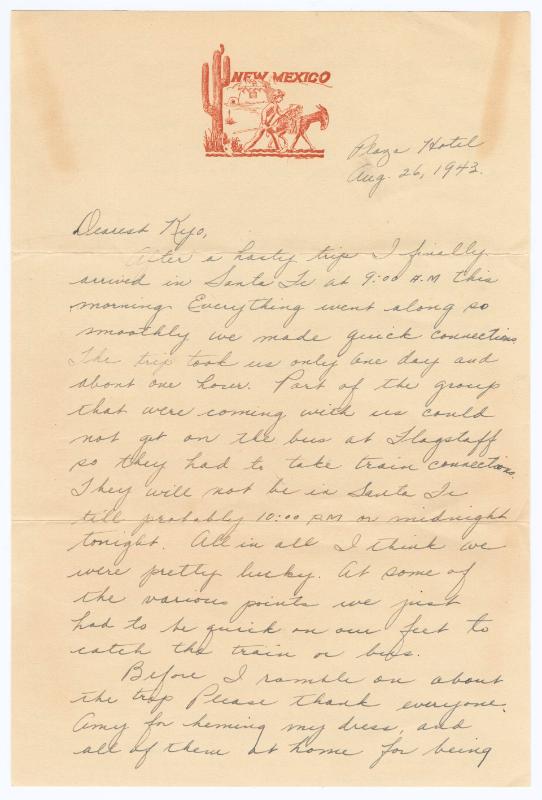 NEW MEXICO
Plaza Hotel
Aug. 26, 1943.
Dearest Kiyo,
After a hasty trip I finally
arrived in Santa Fe at 9:00 A.M this
morning. Everything went along so
smoothly we made quick connections.
The trip took us only one day and
about one hour. Part of the group
that were coming with us could
not get on the bus at Flagstaff
so they had to take train connections.
They will not be in Santa Fe
till probably 10:00 PM or midnight
tonight. All in all I think we
were pretty lucky. At some of
the various points we just
had to be quick on our feet to
catch the train or bus.
Before I ramble on about
the trip Please thank everyone.
Amy for heming my dress, and
all of them at home for being